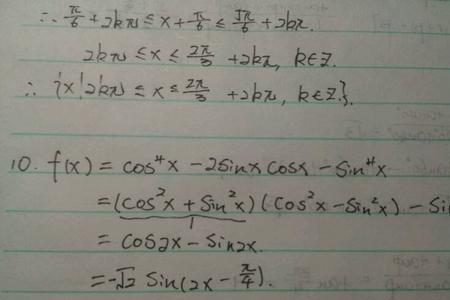 ∴ π/6 + 2kπ ≤ x + π/6 ≤ 5π/6 + 2kπ.
2kπ ≤ x ≤ 2π/3 + 2kπ, k∈Z.
∴ {x | 2kπ ≤ x ≤ 2π/3 + 2kπ, k∈Z}.
10. f(x) = cos⁴x - 2sinx cosx - sin⁴x
= (cos²x + sin²x)(cos²x - sin²x) - Si
1
= cos2x - sin2x
= -√2 sin(2x - π/4).